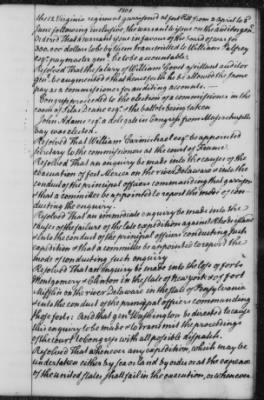 the 12 Virginia regiment garrisoned at fort Pitt from 2 april to 8th
June following inclusive the warrants issue on the auditor gen^l
Ordered That a warrant issue in favour of the board of war for
300.000 dollars to be by them transmitted to William Palfrey
esq^r paymaster gen^l he to be accountable.
Resolved That the salary of William Govet assistant auditor
gen^l be augmented so that henceforth he be allowed the same
pay as a commissioner for auditing accounts.
Congress proceeded to the election of a commissioner in the
room of Silas Deane esq^r & the ballots being taken
John Adams esq^r a delegate in Congress from Massachusetts
bay was elected.
Resolved That William Carmichael esq^r be appointed
secretary to the commissioners at the court of France
Resolved That an enquiry be made into the causes of the
evacuation of fort Mercer on the river Delaware & into the
conduct of the principal officers commanding that garrison
that a committee be appointed to report the mode of con-
ducting the enquiry.
Resolved That an immediate enquiry be made into the
causes of the failure of the late expedition against Rhode island
& into the conduct of the principal officers conducting such
expedition & that a committee be appointed to report the
mode of conducting such enquiry
Resolved That an enquiry be made into the loss of forts
Montgomery & Clinton in the state of New york & of fort
Mifflin on the river Delaware in the state of Pennsylvania
& into the conduct of the principal officers commanding
those forts: And that gen^l Washington be directed to cause
this enquiry to be made & to transmit the proceedings
of the court to Congress with all possible dispatch.
Resolved That whenever any expedition, which may be
undertaken either by sea or land by order or at the expence
of the united states shall fail in the execution, or whenever